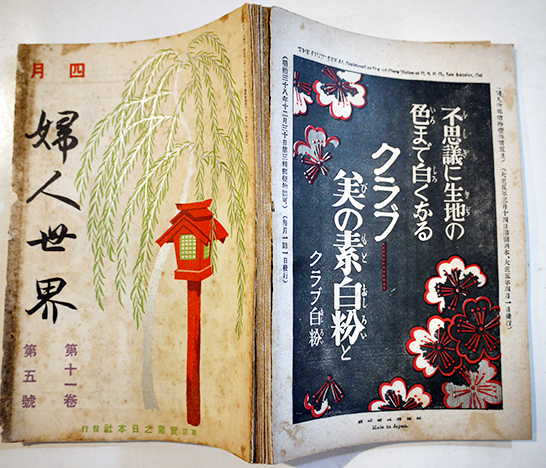 四月
婦人世界
第十一卷
第五號
東京 實業之日本社發行
不思議に生地の
色まで白くなる
クラブ
美の素白粉と
クラブ白粉
(明治三十八年十二月三十日第三種郵便物認可)(每月一回一日發行)
Made in Japan.